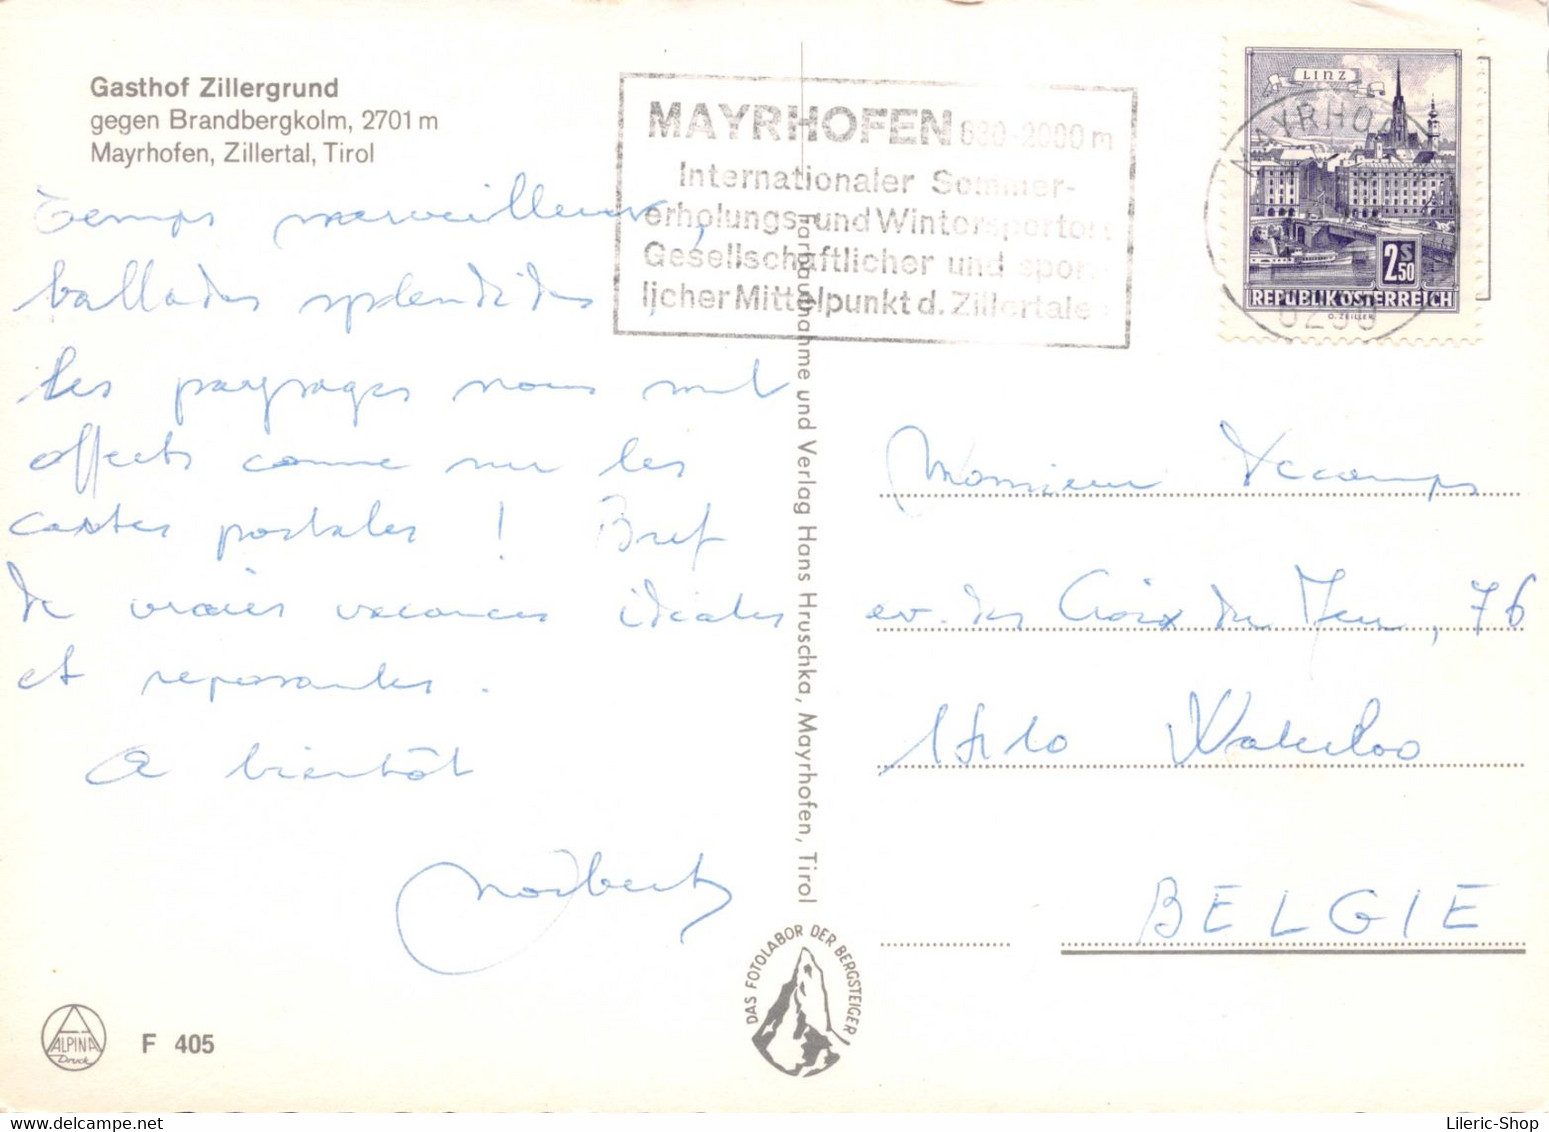 Gasthof Zillergrund
gegen Brandbergkolm, 2701 m
Mayrhofen, Zillertal, Tirol
MAYRHOFEN 630-2000 m
Internationaler Sommer-
erholungs- und Wintersportort
Gesellschaftlicher und sport-
licher Mittelpunkt d. Zillertales
LINZ
MAYRHO
2S50
REPUBLIK ÖSTERREICH
O. ZEILLER
6290
Temps merveilleux,
ballades splendides
les paysages nous
effects comme sur les
cartes postales ! Bref
de vraies vacances idéales
et reposantes.
A bientôt
Norbert
Farbaufnahme und Verlag Hans Hruschka, Mayrhofen, Tirol
Monsieur Decamps
av. des Croix du Feu, 76
1410 Waterloo
BELGIE
DAS FOTOLABOR DER BERGSTEIGER
ALPINA
Druck
F 405
Lileric-Shop